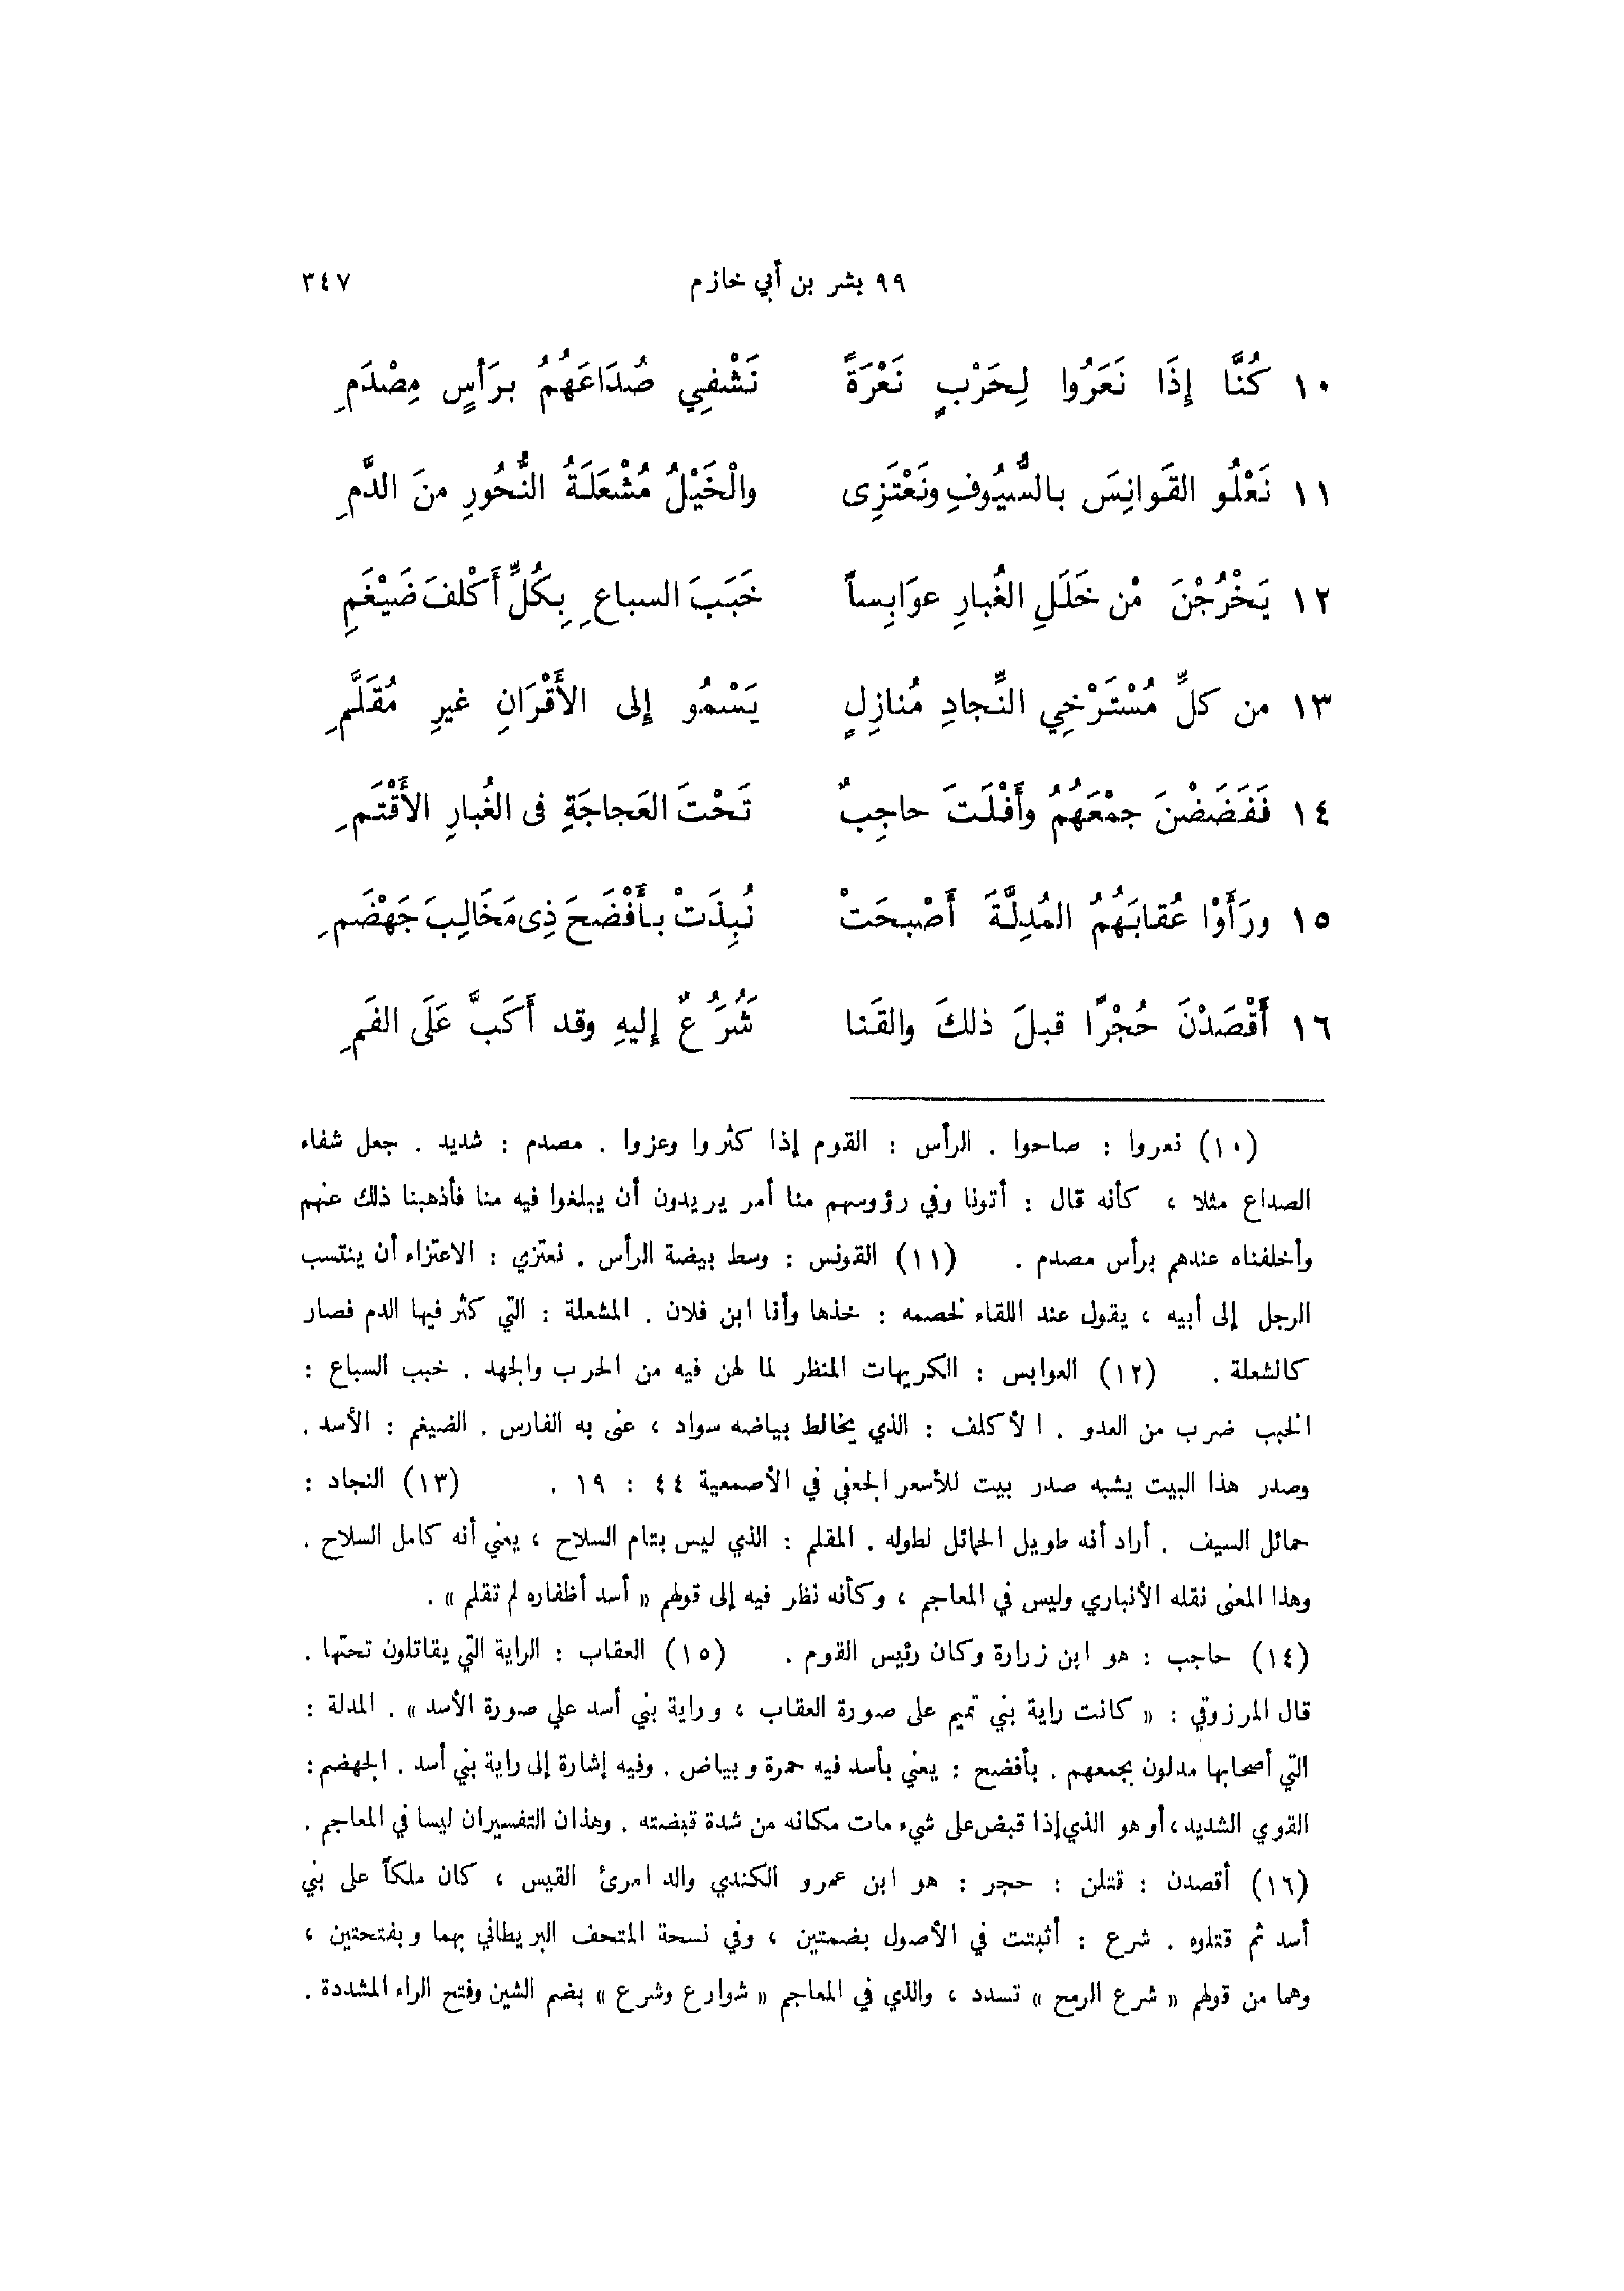 ٩٩ بشر بن أبي خازم ٣٤٧
١٠ كُنَّا إِذَا نَعَرُوا لِحَرْبٍ نَعْرَةً نَشْفِي صُدَاعَهُمُ برَأسٍ مِصْدَمِ
١١ نَعْلُو القَوانِسَ بالسُّيُوفِ ونَعْتَزِى والْخَيْلُ مُشْعَلَةُ النُّحُورِ منَ الدَّمِ
١٢ يَخْرُجْنَ مْن خَلَلِ الغُبارِ عوَابِساً خَبَبَ السباعِ بِكُلِّ أَكْلفَ ضَيْغَمِ
١٣ من كلِّ مُسْتَرْخِي النِّجادِ مُنازِلٍ يَسْمُو إلى الأَقْرَانِ غيرِ مُقَلَّمِ
١٤ فَفَضَضْنَ جمْعَهُمُ وأَفْلَتَ حاجِبٌ تَحْتَ العَجاجَةِ فى الغُبارِ الأَقْتَمِ
١٥ ورَأَوْا عُقابَهُمُ المُدِلَّةَ أَصْبحَتْ نُبِذَتْ بأَفْضَحَ ذِى مَخَالِبَ جَهْضَمِ
١٦ أَقْصَدْنَ حُجْرًا قبلَ ذلكَ والقَنا شُرُعٌ إليهِ وقد أَكَبَّ عَلَى الفَمِ
(١٠) نعروا : صاحوا . الرأس : القوم إذا كثروا وعزوا . مصدم : شديد . جعل شفاء
الصداع مثلا ، كأنه قال : أتونا وفي رؤوسهم منا أمر يريدون أن يبلغوا فيه منا فأذهبنا ذلك عنهم
وأخلفناه عندهم برأس مصدم . (١١) القونس : وسط بيضة الرأس . نعتزي : الاعتزاء أن ينتسب
الرجل إلى أبيه ، يقول عند اللقاء لخصمه : خذها وأنا ابن فلان . المشعلة : التي كثر فيها الدم فصار
كالشعلة . (١٢) العوابس : الكريهات المنظر لما لهن فيه من الحرب والجهد . خبب السباع :
الخبب ضرب من العدو . الأكلف : الذي يخالط بياضه سواد ، عنى به الفارس . الضيغم : الأسد .
وصدر هذا البيت يشبه صدر بيت للأسعر الجعفى في الأصمعية ٤٤ : ١٩ . (١٣) النجاد :
حمائل السيف . أراد أنه طويل الحمائل لطوله . المقلم : الذي ليس بتام السلاح ، يعني أنه كامل السلاح .
وهذا المعنى نقله الأنباري وليس في المعاجم ، وكأنه نظر فيه إلى قولهم « أسد أظفاره لم تقلم » .
(١٤) حاجب : هو ابن زرارة وكان رئيس القوم . (١٥) العقاب : الراية التي يقاتلون تحتها .
قال المرزوقي : « كانت راية بني تميم على صورة العقاب ، وراية بني أسد علي صورة الأسد » . المدلة :
التي أصحابها مدلون بجمعهم . بأفضح : يعني بأسد فيه حمرة وبياض . وفيه إشارة إلى راية بني أسد . الجهضم :
القوي الشديد ، أو هو الذي إذا قبض على شيء مات مكانه من شدة قبضته . وهذان التفسيران ليسا في المعاجم .
(١٦) أقصدن : قتلن : حجر : هو ابن عمرو الكندي والد امرئ القيس ، كان ملكاً على بني
أسد ثم قتلوه . شرع : أثبتت في الأصول بضمتين ، وفي نسحة المتحف البريطاني بهما وبفتحتين ،
وهما من قولهم « شرع الرمح » تسدد ، والذي في المعاجم « شوارع وشرع » بضم الشين وفتح الراء المشددة .